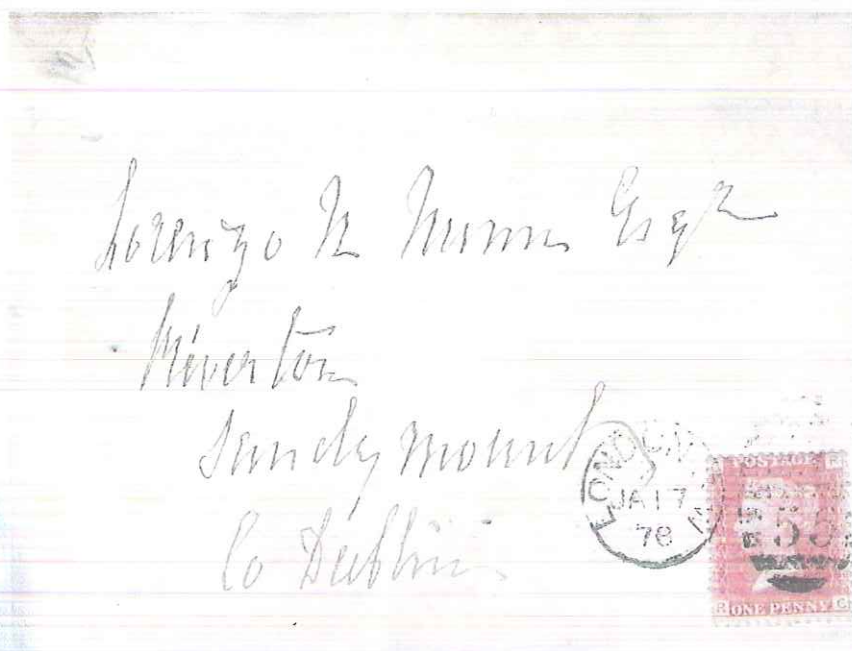 Lorenzo N Nunn Esqr
Riverton
Sandymount
Co Dublin
LONDON N
JA 17
78
POSTAGE
55
R ONE PENNY